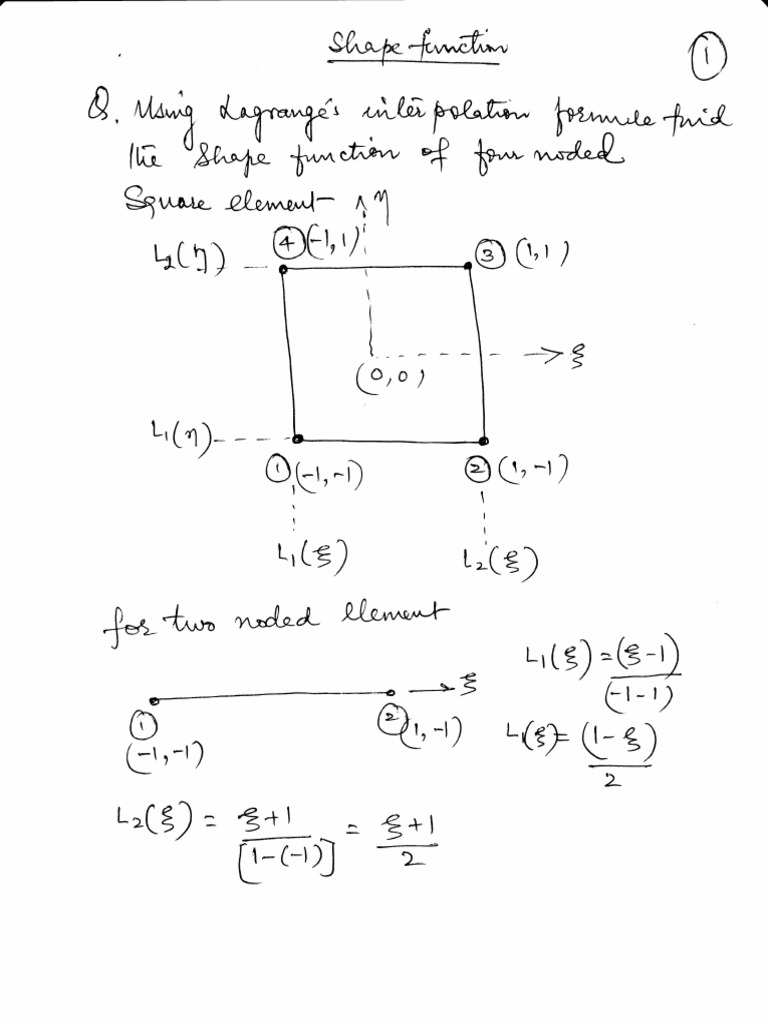 Shape function
①
Q. Using Lagrange's interpolation formula find
the shape function of four noded
Square element
η
L₂(η) ④ (-1, 1) ③ (1, 1)
ξ
(0, 0)
L₁(η)
① (-1, -1) ② (1, -1)
L₁(ξ) L₂(ξ)
for two noded element
L₁(ξ) = (ξ-1) / (-1-1)
ξ
① ②
(-1, -1) (1, -1) L₁(ξ) = (1-ξ) / 2
L₂(ξ) = ξ+1 / [1-(-1)] = ξ+1 / 2